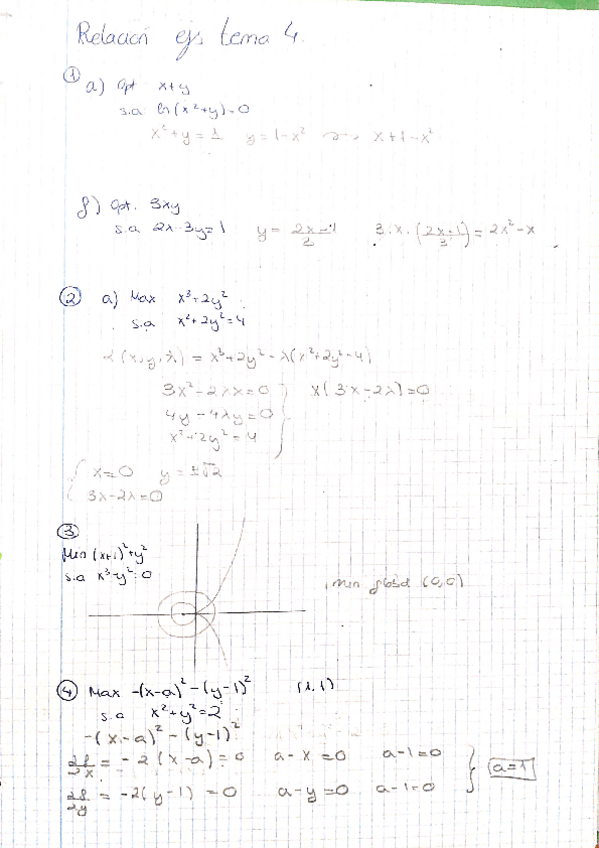 Relación ejs tema 4.
① a) Opt x+y
s.a ln(x²+y)=0
x²+y=1 y=1-x² x+1-x²
f) Opt. 3xy
s.a 2x-3y=1 y = (2x-1)/3 3·x·(2x-1)/3 = 2x²-x
② a) Max x³+2y²
s.a x²+2y²=4
L(x,y,λ) = x³+2y²-λ(x²+2y²-4)
3x²-2λx=0 x(3x-2λ)=0
4y-4λy=0
x²+2y²=4
x=0 y=±√2
3x-2λ=0
③
Min (x+1)²+y²
s.a x³-y²=0
min global (0,0)
④ Max -(x-a)²-(y-1)² (1,1)
s.a x²+y²=2
-(x-a)²-(y-1)²
∂f/∂x = -2(x-a)=0 a-x=0 a-1=0
∂f/∂y = -2(y-1)=0 a-y=0 a-1=0 a=1